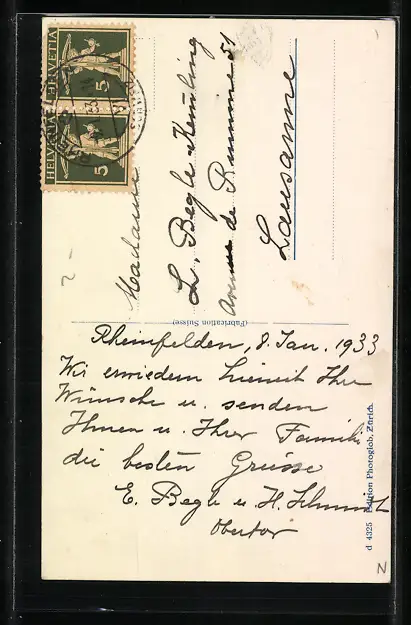 HELVETIA 5
HELVETIA 5
Madame
L. Begle-Kemling
Avenue de Rumine 51
Lausanne
(Fabrication Suisse)
Rheinfelden, 8. Jan. 1933
Wir erwiedern hiemit Ihre
Wünsche u. senden
Ihnen u. Ihrer Familie
die besten Grüsse
E. Begle u H. Schmidt
Obertor
d 4325 Edition Photoglob, Zürich.
N